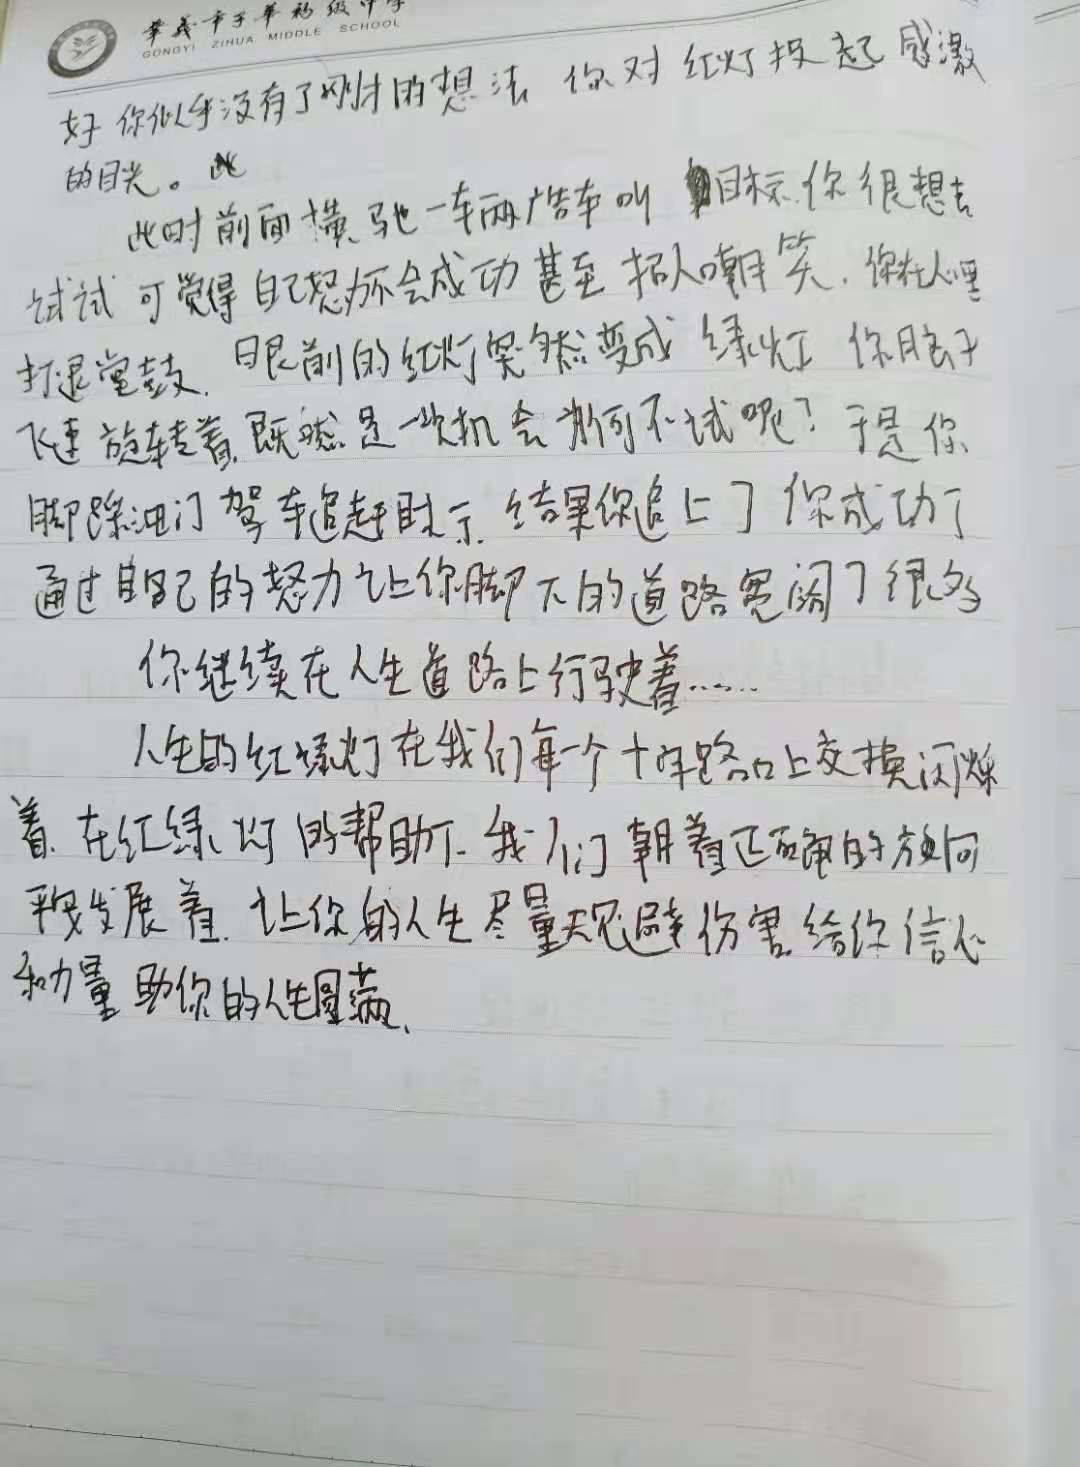 巩义市子华初级中学
GONGYI ZIHUA MIDDLE SCHOOL
好 你似乎没有了刚才的想法 你对红灯投起感激
的目光。此
此时前面横驰一车两广告车叫 目标.你很想去
试试 可觉得自己怒力不会成功 甚至招人嘲笑.你在心里
打退堂鼓.眼前的红灯突然变成绿灯 你脑子
飞速旋转着.既然是一次机会为何不试呢?于是你
脚踩油门驾车追赶目标.结果你追上了 你成功了
通过自己的怒力让你脚下的道路宽阔了很多
你继续在人生道路上行驶着......
人生的红绿灯在我们每一个十字路口上交换闪烁
着.在红绿灯的帮助下.我们朝着正确的方向
平稳发展着.让你的人生尽量规避伤害.给你信心
和力量 助你的人生圆满.